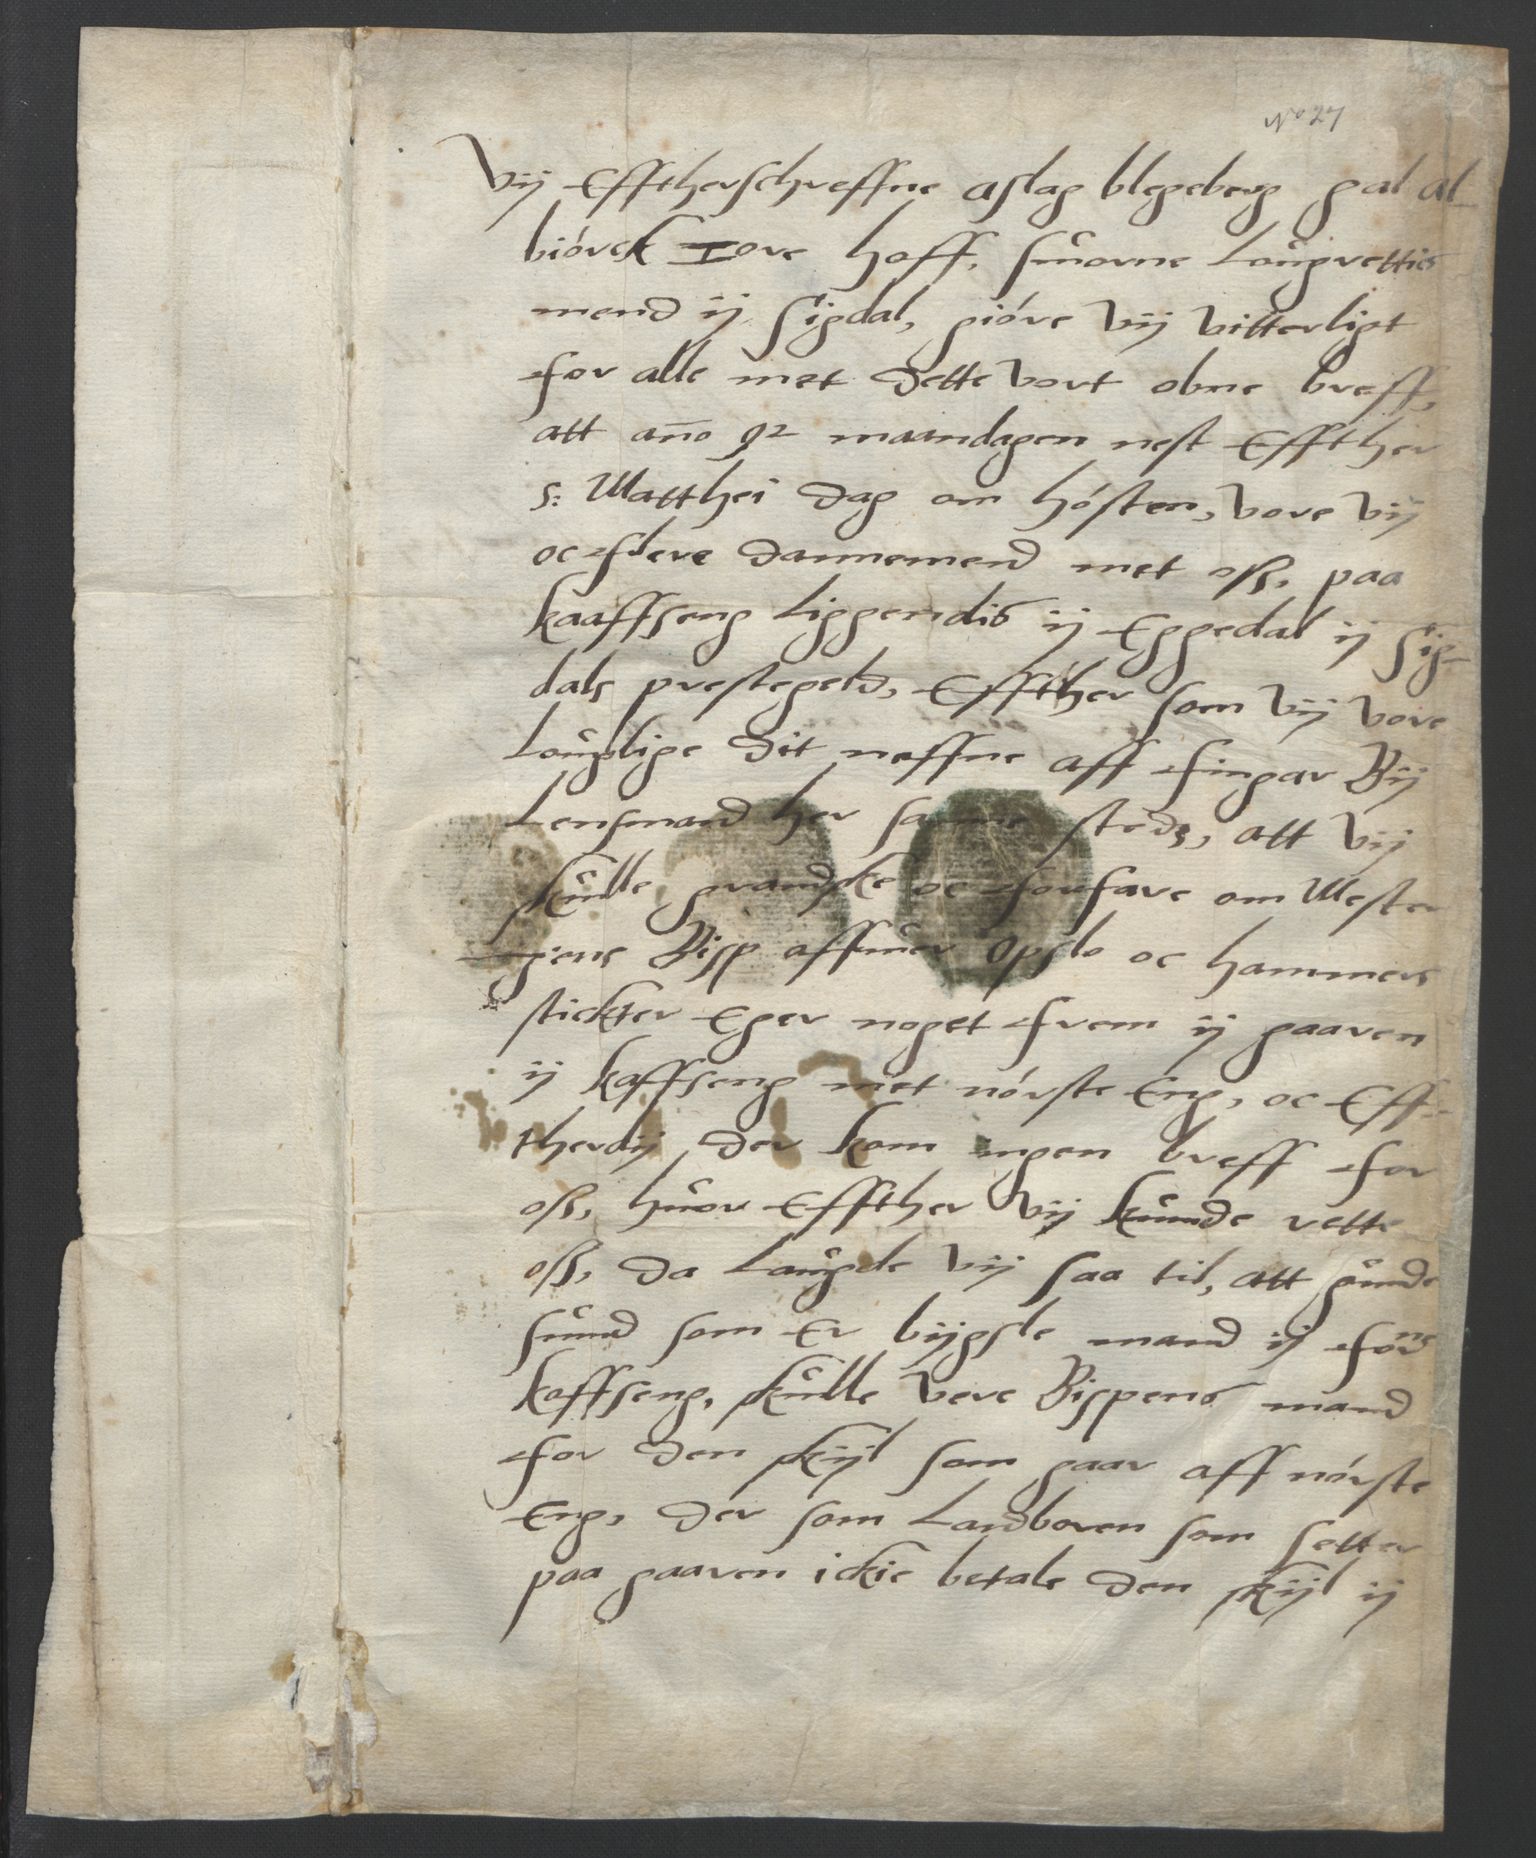 No 27
Vij Efftherschreffne aslag blegeberg gal al
biórck Tore hoff, suorne Laugrettis
mend ij Sigdal, gióre Vij Vitterligt
for alle met dette Vort obne breff,
att año 92 maandagen nest Effther
S: Matthei dag om hósten, Vore Vij
oc flere dannemend met oss, paa
kaaffseng Liggendis ij Eggedal ij Sig-
dals prestegeld, Effther som Vij Vore
Lauglige dit neffne aff fingar Bij
Lensmand her samme steds, att Vij
skulle grandske oc forfare om Mester
jens Bisp offuer Opslo oc hammers
stickter Eger noget frem ij gaaren
ij kaffseng met nórste Eng, oc Eff-
therdij der kom ingen breff for
oss, huor Effther Vij kunde rette
oss, da Laugde Vij saa til, att gunde
sund som Er bijgsle mand ij forne
kaffseng, skulle Vere Bispens mand
for den skijl som gaar aff nórste
Eng, der som Landboren som setter
paa gaaren ickie betale den skijl ij